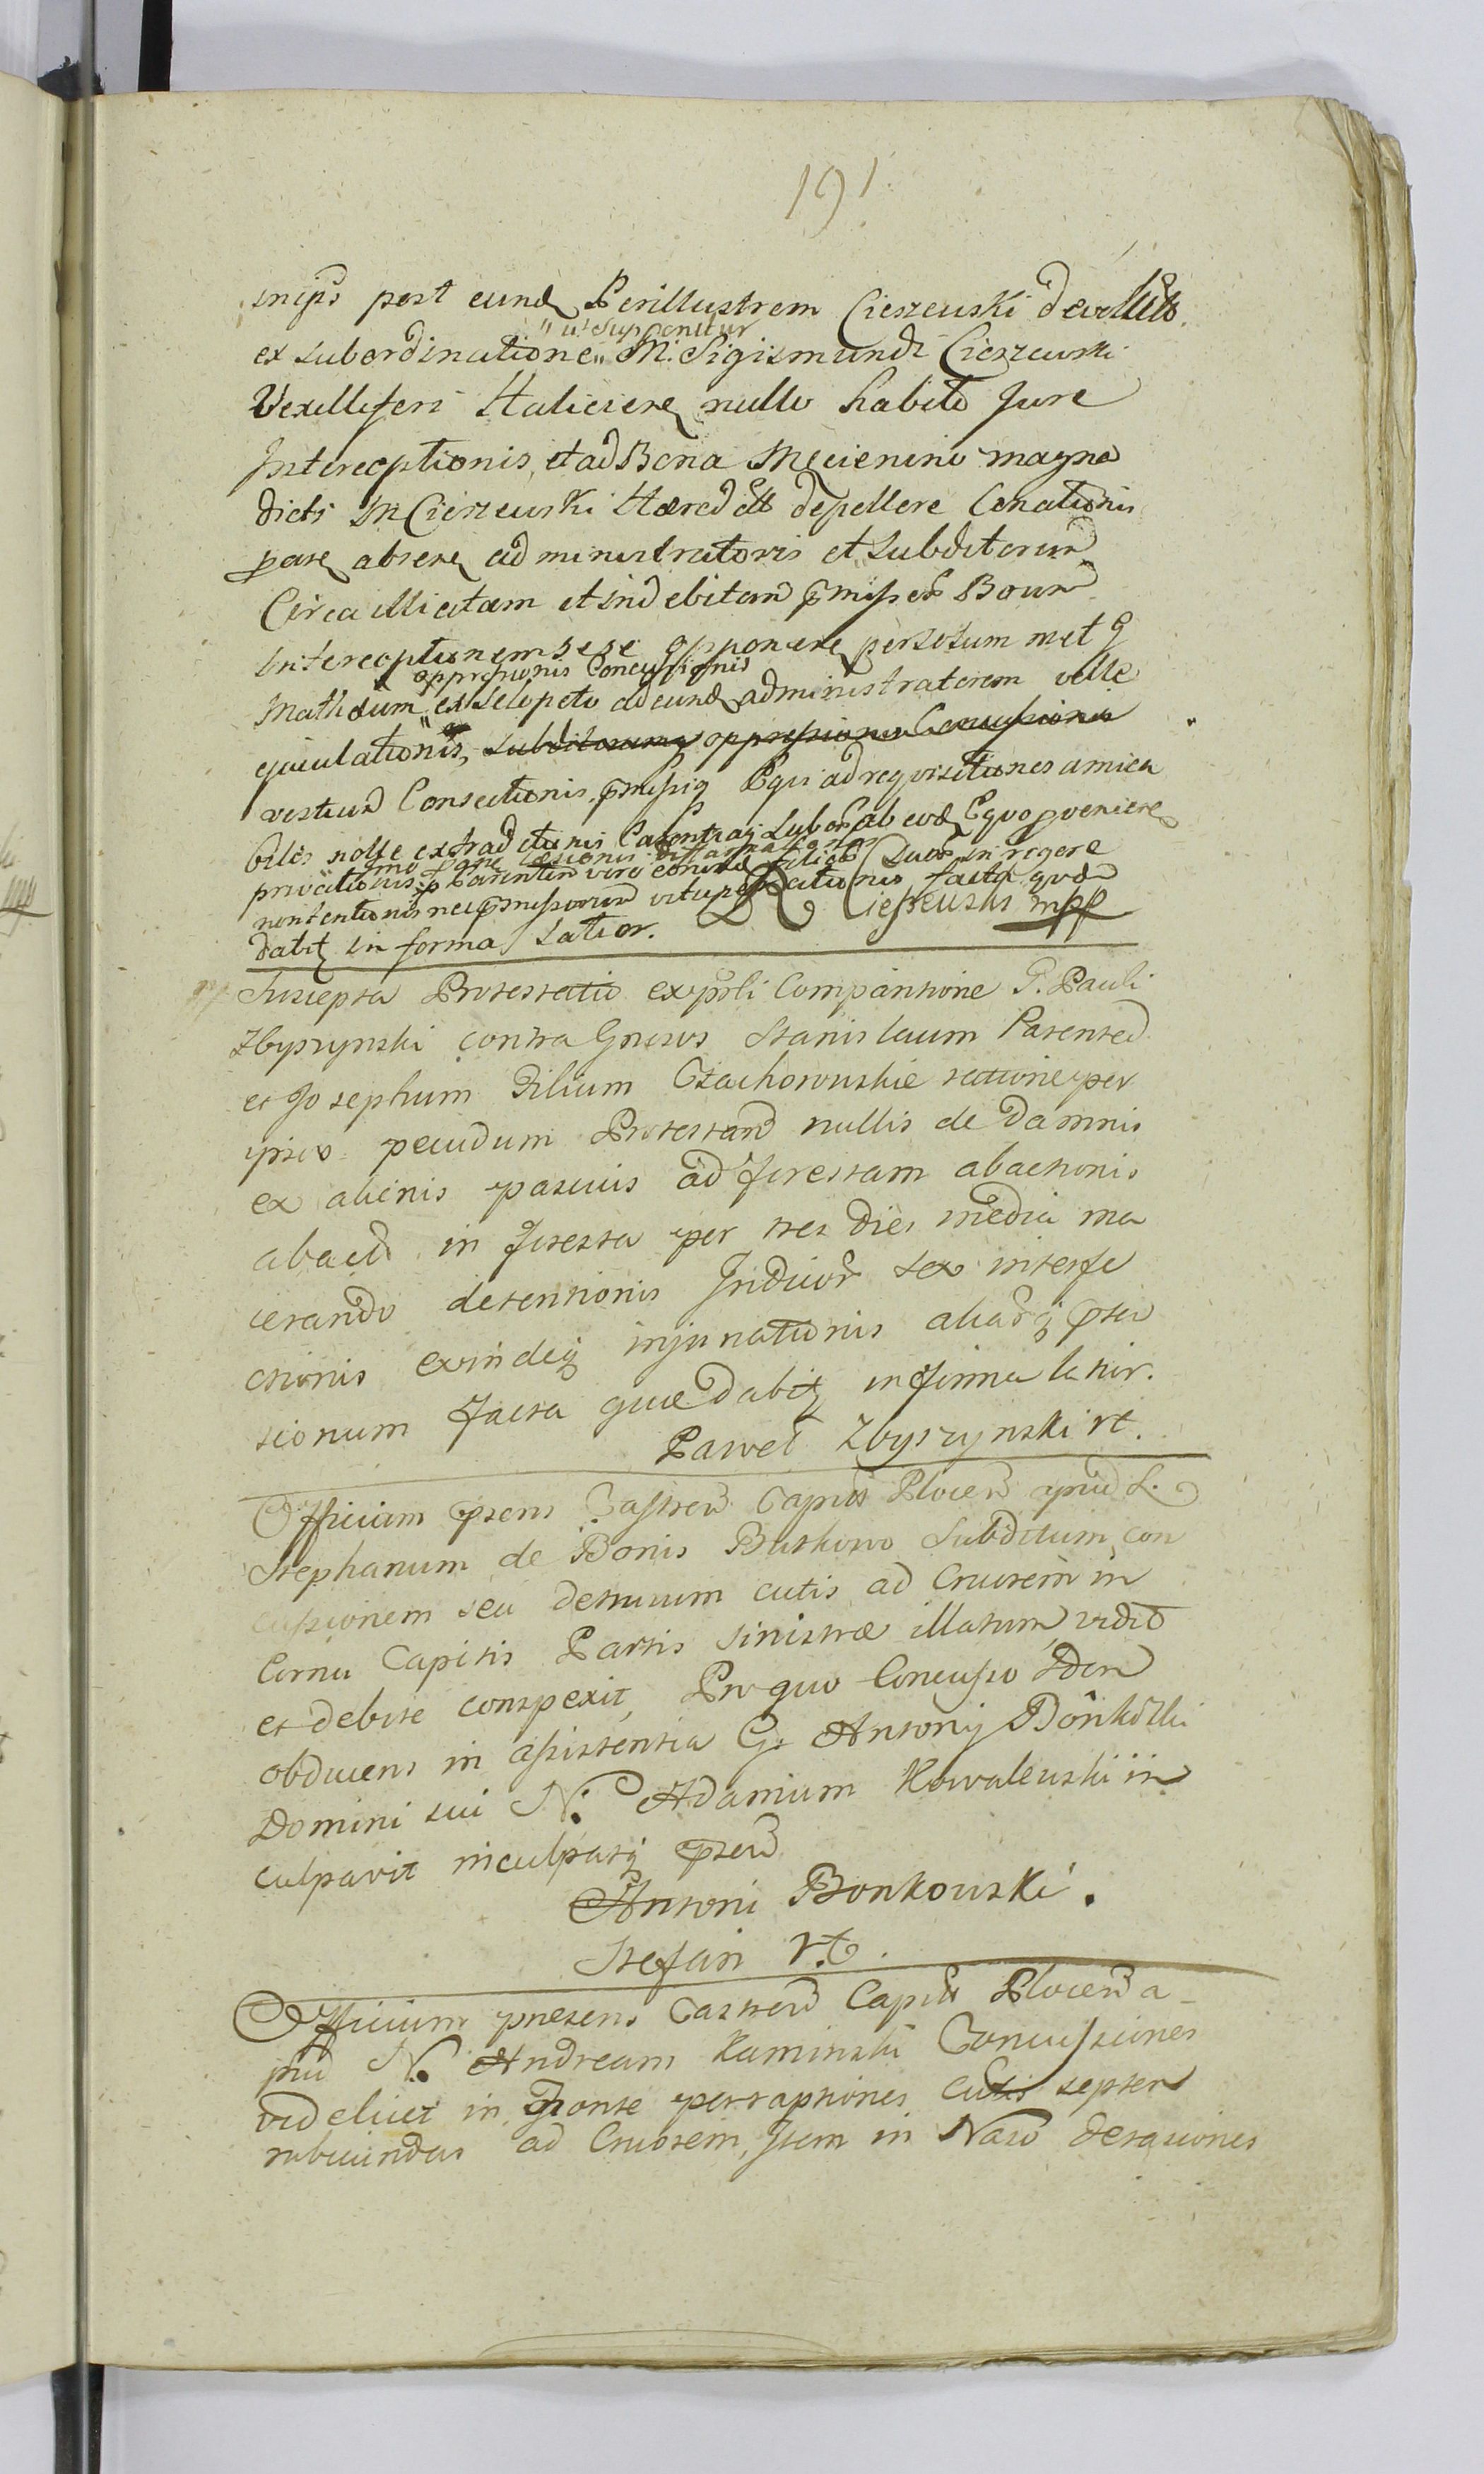 191
inijs post eund Perillustrem Cieszewski devoluto
" ut supponitur
ex subordinatione " M. Sigismundi Cieszewski
Vexilliferi Halicien nullo habito Jure
Interceptionis, et ad Bona Mecienino magna
dicti M Cieszewski Hæredit depellere Conationis
pare absen administratoris et subditorum
Circa illicitam et indebitam pmissor Bonor
Interceptionem sese opponere
oppressionis Concussionis
Mathæum " ex Selopeto ad eund administratorem velle
ejaculationis, subditorumq oppressionis Concussionis
vestium Conscitionis, pmissiq Equi ad requisitiones amica
biles nolle extraditionis Labor ab eod Equo proveniere
privationis, Parentem vero contra filios suos in regere
non tentionis nec pmissorum vituperationis facta quæ
dabit in forma Latior. Cieszewski mpp
Suscepta Protestatio ex psoli Comparitione G. Pauli
Zbyszynski contra Gnrosos Stanislaum Parentem
et Josephum Filium Czachorowskie ratione per
ipsos pecudum Protestan nullis de Damnis
ex alienis pascuis ad forestam abactionis
abact in foresta per tres dies inedia ma
cerando detentionis Inducior sex interfe
ctionis exindeq injunationis aliarq pten
sionum facta quæ Dabit in forma latior.
Paweł Zbyszynski rt.
Officium psens Castren Capit Plocen apud L.
Stephanum de Bonis Buskowo Subditum con
cussionem seu detritum cutis ad Cruorem in
Cornu Capitis Partis sinistræ illatum vidit
et debite conspexit, Pro quo Concusso Idem
obducens in assistentia G. Antonij Bonkowski
Domini sui N. Adamum Kowalewski in
culpavit inculpatq psen
Antoni Bonkowski.
Stefan rt.
Officium præsens Castren Capit Plocen a-
pud N. Andream Kaminski Concussiones
videlicet in Fronte perraptiones Cutis septem
rubicundas ad Cruorem, Item in Naso derasiones